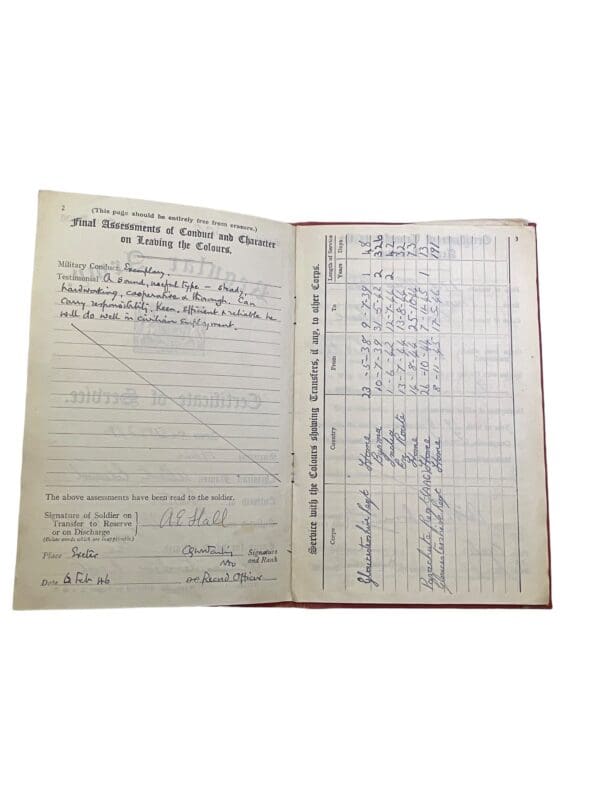 2
(This page should be entirely free from erasure.)
Final Assessments of Conduct and Character
on Leaving the Colours.
Military Conduct Exemplary.
Testimonial A sound, useful type – steady,
hardworking, cooperative & thorough. Can
carry responsibility. Keen, efficient & reliable he
will do well in civilian employment.
The above assessments have been read to the soldier.
Signature of Soldier on
Transfer to Reserve
or on Discharge
A E Hall
Place Exeter
Signature
and Rank
Date 6 Feb 46
Record Officer
3
Service with the Colours showing Transfers, if any, to other Corps.
Corps Country From To Length of Service
Years Days
Gloucestershire Regt Home 23-5-38 9-7-39 1 48
Burma 10-7-39 31-5-42 2 326
India 1-6-42 12-7-44 2 42
En Route 13-7-44 13-8-44 32
Home 14-8-44 25-10-44 73
Parachute Reg (AAC) Home 26-10-44 7-11-45 1 13
Gloucestershire Regt Home 8-11-45 17-5-46 191